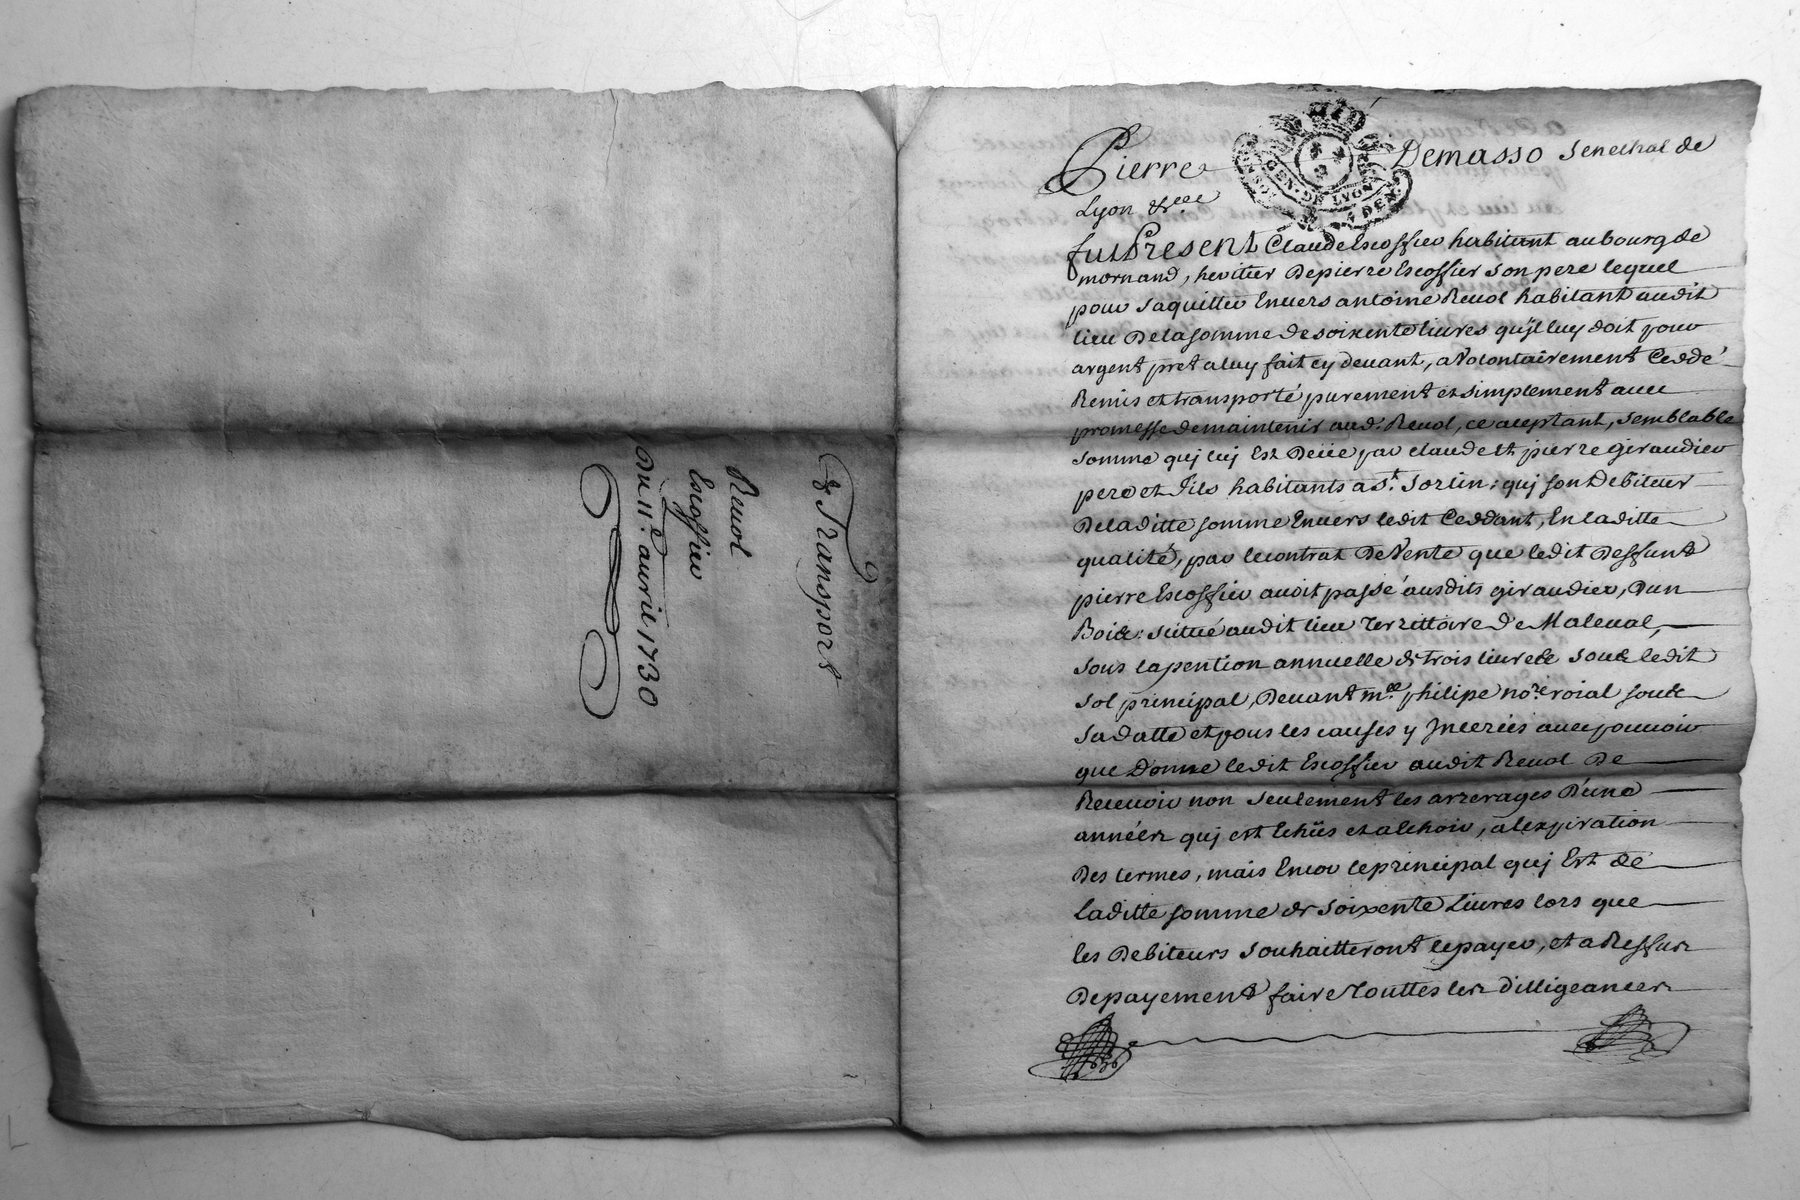 & Transport
Reuol
Escoffier
Du 11.e auril 1730
GEN. DE LYON
DEN.
Pierre Demasso Senechal de
Lyon &cee
fut Present Claude Escoffier habitant au bourg de
mornand, heritier de pierre Escoffier son pere lequel
pour saquitter Enuers antoine Reuol habitant audit
lieu De la somme de soixente liures qu'jl luy doit pour
argent pret a luy fait cy deuant, a Volontairement Ceddé
Remis et transporté purement et simplement auec
promesse de maintenir aud. Reuol, ce aceptant, semblable
somme quj luj Est Deüe par claude et pierre giraudier
pere et fils habitants a St. Sorlin; quj sont Debiteur
De laditte somme Enuers ledit Ceddant, En laditte
qualité, par le contrat De Vente que ledit Deffunt
pierre Escoffier auoit passé ausdits giraudier, Dun
Bois: scitué audit lieu Territtoire de Maleual,
sous la pention annuelle de trois liures soub ledit
sol principal, Deuant me. philipe nore. roial soub
sa datte et pour les causes y Jncerées auec pouuoir
que Donne ledit Escoffier audit Reuol De
Receuoir non seulement les arrerages D'une
année quj est echüs et a echoir, a lexpiration
Des termes, mais Encor le principal quj Est de
laditte somme de soixente Liures lors que
les Debiteurs souhaitteront le payer, et a Reffus
De payement faire Touttes les dilligeances